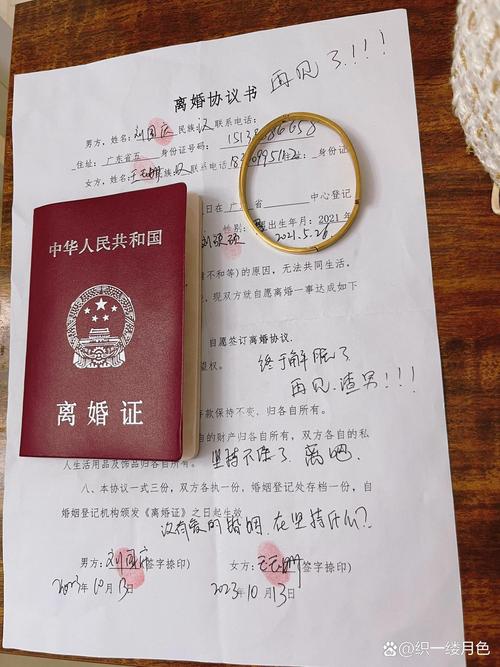 再见了!!!
离婚协议书
男方,姓名:刘国庆 民族 汉 联系电话:
住址:广东省 身份证号码:
女方,姓名: 族 汉 联系电话 身份证
日在 广 省 中心登记
性别: 出生年月:2021年
2021.5.26
情不和等)的原因,无法共同生活,
,现双方就自愿离婚一事达成如下
自愿签订离婚协议。
望权。
终于解脱了
再见.渣男!!!
存款保持不变,归各自所有。
自的财产归各自所有,双方各自的私
人生活用品及饰品归各自所有。
坚持不下去了.离吧.
八、本协议一式三份,双方各执一份,婚姻登记处存档一份,自
婚姻登记机构颁发《离婚证》之日起生效
没有爱的婚姻.在坚持什么?
男方:刘国庆(签字捺印) 女方:(签字捺印)
2023年10月13日 2023年10月13日
中华人民共和国
离婚证
Bai百家号/织一缕月色